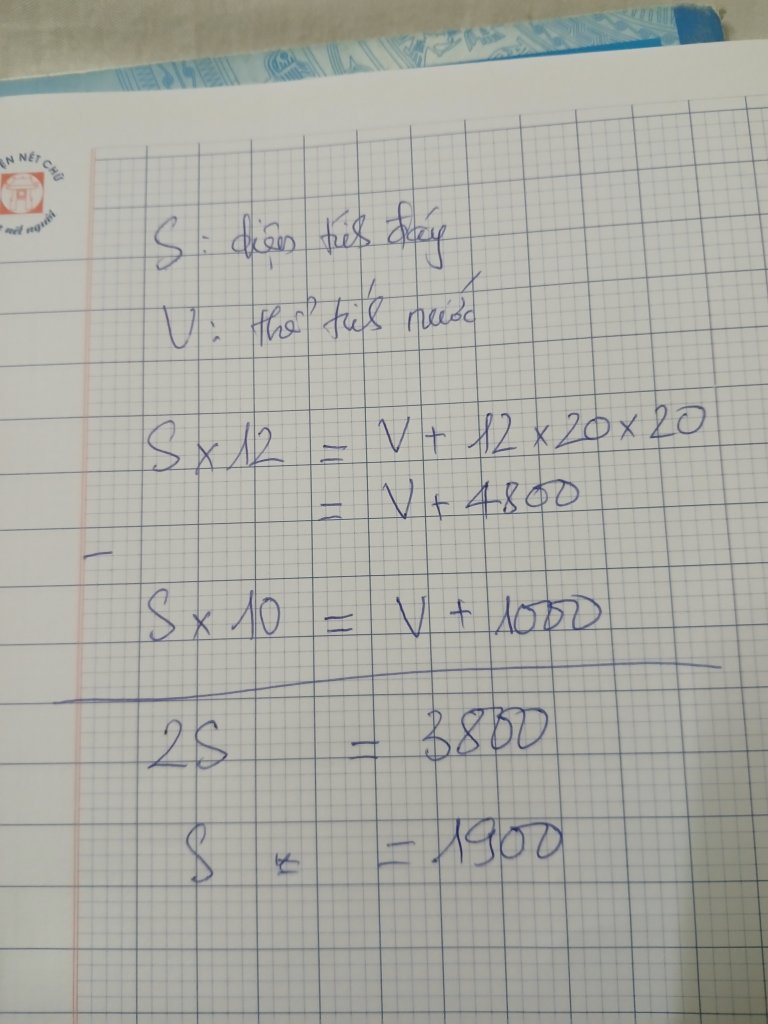 ÊN NÉT CHỮ
nết người
S: diện tích đáy
V: thể tích nước
S x 12 = V + 12 x 20 x 20
= V + 4800
-
S x 10 = V + 1000
2S = 3800
S = 1900